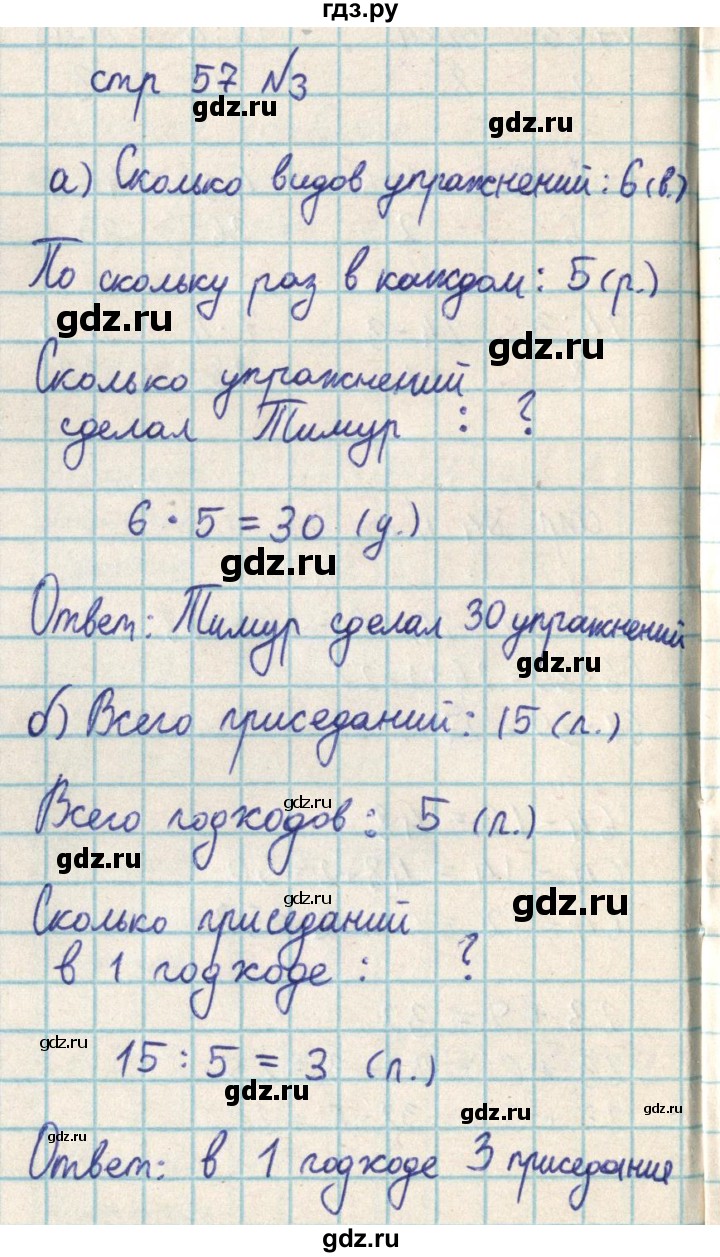 гдз.ру
стр 57 №3
gdz.ru
gdz.ru
а) Сколько видов упражнений: 6 (в.)
По скольку раз в каждом: 5 (р.)
gdz.ru
gdz.ru
Сколько упражнений
сделал Тимур : ?
6 · 5 = 30 (у.)
gdz.ru
Ответ: Тимур сделал 30 упражнений
gdz.ru
б) Всего приседаний: 15 (п.)
gdz.ru
Всего подходов: 5 (п.)
gdz.ru
gdz.ru
gdz.ru
Сколько приседаний
в 1 подходе : ?
gdz.ru
15 : 5 = 3 (п.)
gdz.ru
gdz.ru
gdz.ru
gdz.ru
Ответ: в 1 подходе 3 приседания
gdz.ru